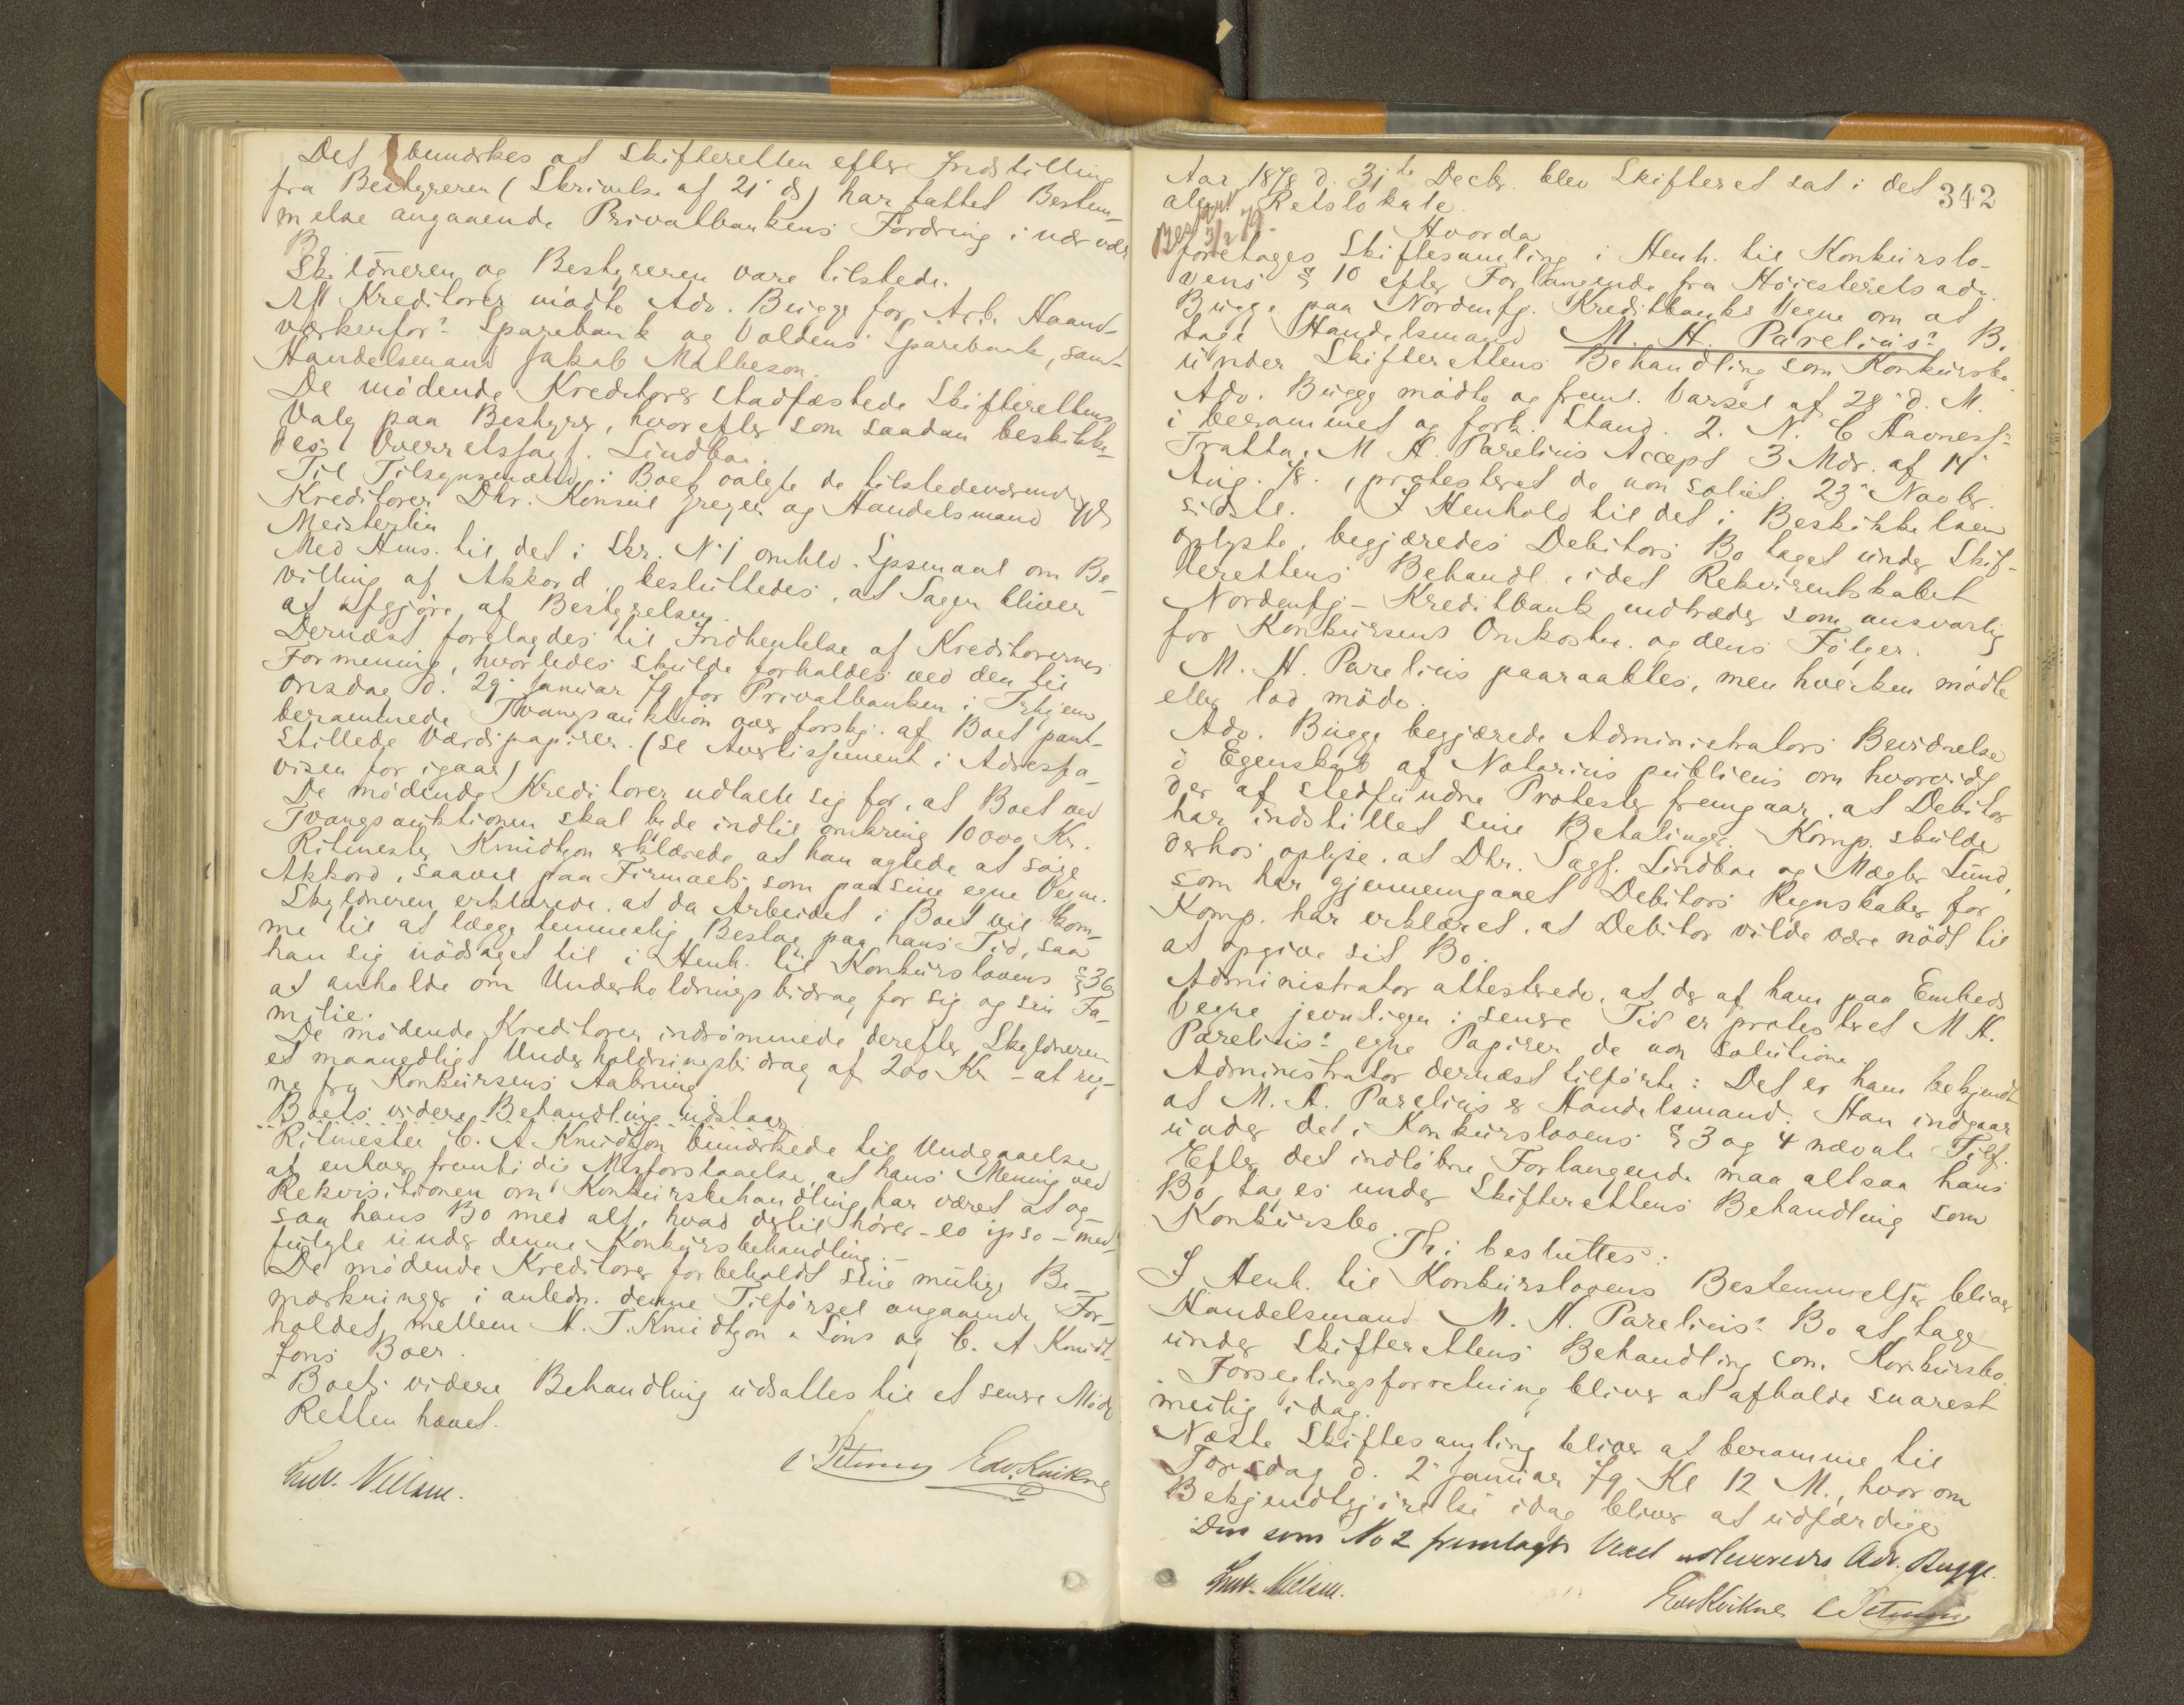 Det bemærkes at Skifteretten efter Indstilling
fra Bestyreren (Skrivelse af 21' ds) har fattet Bestem-
melse angaaende Privatbankens Fordring i nærvær
Bo
Skyldneren og Bestyreren vare tilstede.
Af Kreditorer mødte Adv. Bugge for Arb. Haand-
værkerfors Sparebank og Voldens Sparebank, samt
Handelsmand Jakob Matheson.
De mødende Kreditorer stadfæstede Skifterettens
Valg paa Bestyrer, hvorefter som saadan beskikke-
des Overretssagf. Lindboe.
Til Tilsynsmænd i Boet valgte de tilstedeværende
Kreditorer Dhr. Konsul Jreyer og Handelsmand W
Meisterlin
Med Hens. til det i Skr. N. 1 omhlo. Spsmaal om Be-
villing af Akkord, besluttedes, at Sagen bliver
at afgjøre af Bestyrelsen.
Dernæst forelagdes til Indhentelse af Kreditorernes
Formening, hvorledes skulde forholdes ved den til
Onsdag d. 29' Januar 79 for Privatbanken i Trhjem
berammede Tvangsauktion over forskj. af Boet pant-
stillede Værdipapirer. (se Avertissement i Adressa-
visen for igaar)
De mødende Kreditorer udtalte sig for, at Boet ved
Tvangsauktionen skal byde indtil omkring 10000 Kr.
Ritmester Knudtzon erklærede at han agtede at søge
Akkord, saavel paa Firmaets som paa sine egne Vegne.
Skyldneren erklærede, at da Arbeidet i Boet vil kom-
me til at lægge temmelig Beslag paa hans Tid, saa
han sig nødsaget til i Henh. til Konkurslovens § 36
at anholde om Underholdningsbidrag for sig og sin Fa-
milie.
De mødende Kreditorer indrømmede derefter Skyldneren
et maanedligt Underholdningsbidrag af 200 Kr - at reg-
ne fra Konkursens Aabning
Boets videre Behandling udstaar
Ritmester C. A. Knudtzon bemærkede til Undgaaelse
af enhver fremtidig Misforstaaelse, at hans Mening ved
Rekvisitionen om Konkursbehandling har været at og-
saa hans Bo med alt, hvad dertil hører - eo ipso - med-
fulgte under denne Konkursbehandling.
De mødende Kreditorer forbeholdt sine mulige Be-
mærkninger i anledn. denne Tilførsel angaaende For-
holdet mellem N. T. Knudtzon & Søns og C. A Knudt-
zons Boer.
Boets videre Behandling udsattes til et senere Møde
Retten hævet.
Ludv. Nielsen. Edv. Kvikne
342
Aar 1878 d. 31te Decbr. blev Skifteret sat i det
alm. Retslokale.
3/2 79.
Hvorda
foretoges Skiftesamling i Henh. til Konkurslo-
vens § 10 efter Forlangende fra Høiesteretsadv.
Bugge paa Nordenfj. Kreditbanks Vegne om at
tage Handelsmand M. H. Parelius's B.
under Skifterettens Behandling som Konkursbo.
Adv. Bugge mødte og freml. Varsel af 28' d. M.
i berammet og fork. Stand. 2. N. C Havness's
Tratta, M H. Parelius Accept 3 Mdr. af 14'
Aug. 78., protesteret de non solut. 23' Novbr.
sidstl. I Henhold til det i Beskikkelsen
oplyste, begjæredes Debitors Bo taget under Skif-
terettens Behandl. idet Rekvirentskabet
Nordenfj- Kreditbank indtræder som ansvarlig
for Konkursens Omkostn. og dens Følger.
M. H. Parelius paaraabtes, men hverken mødte
eller lod møde.
Adv. Bugge begjærede Administrators Bevidnelse
i Egenskab af Notarius publicus om hvorvidt
der af stedfundne Protester fremgaar, at Debitor
har indstillet sine Betalinger. Komp. skulde
derhos oplyse, at Dhr. Sagf. Lindboe og Mægler Lund,
som har gjennemgaaet Debitors Regnskaber for
Komp. har erklæret, at Debitor vilde være nødt til
at opgive sit Bo.
Administrator attesterede, at der af ham paa Embeds
Vegne jevnligen i senere Tid er protesteret M H.
Parelius's egne Papirer de non solutione.
Administrator dernæst tilførte: Det er ham bekjendt
at M. H. Parelius er Handelsmand. Han indgaar
under det i Konkurslovens §§ 3 og 4 nævnte Tilf.
Efter det indløbne Forlangende maa altsaa hans
Bo tages under Skifterettens Behandling som
Konkursbo.
Thi besluttes:
I Henh. til Konkurslovens Bestemmelser bliver
Handelsmand M. H. Parelius's Bo at tage
under Skifterettens Behandling som Konkursbo.
Forseglingsforretning bliver at afholde snarest
mulig idag.
Næste Skiftesamling bliver at beramme til
Torsdag d. 2' Januar 79 Kl 12 M., hvorom
Bekjendtgjørelse idag bliver at udfærdige
Den som No 2 fremlagte Vexel udleveredes Adv. Bugge.
Ludv. Nielsen. Edv Kvikne